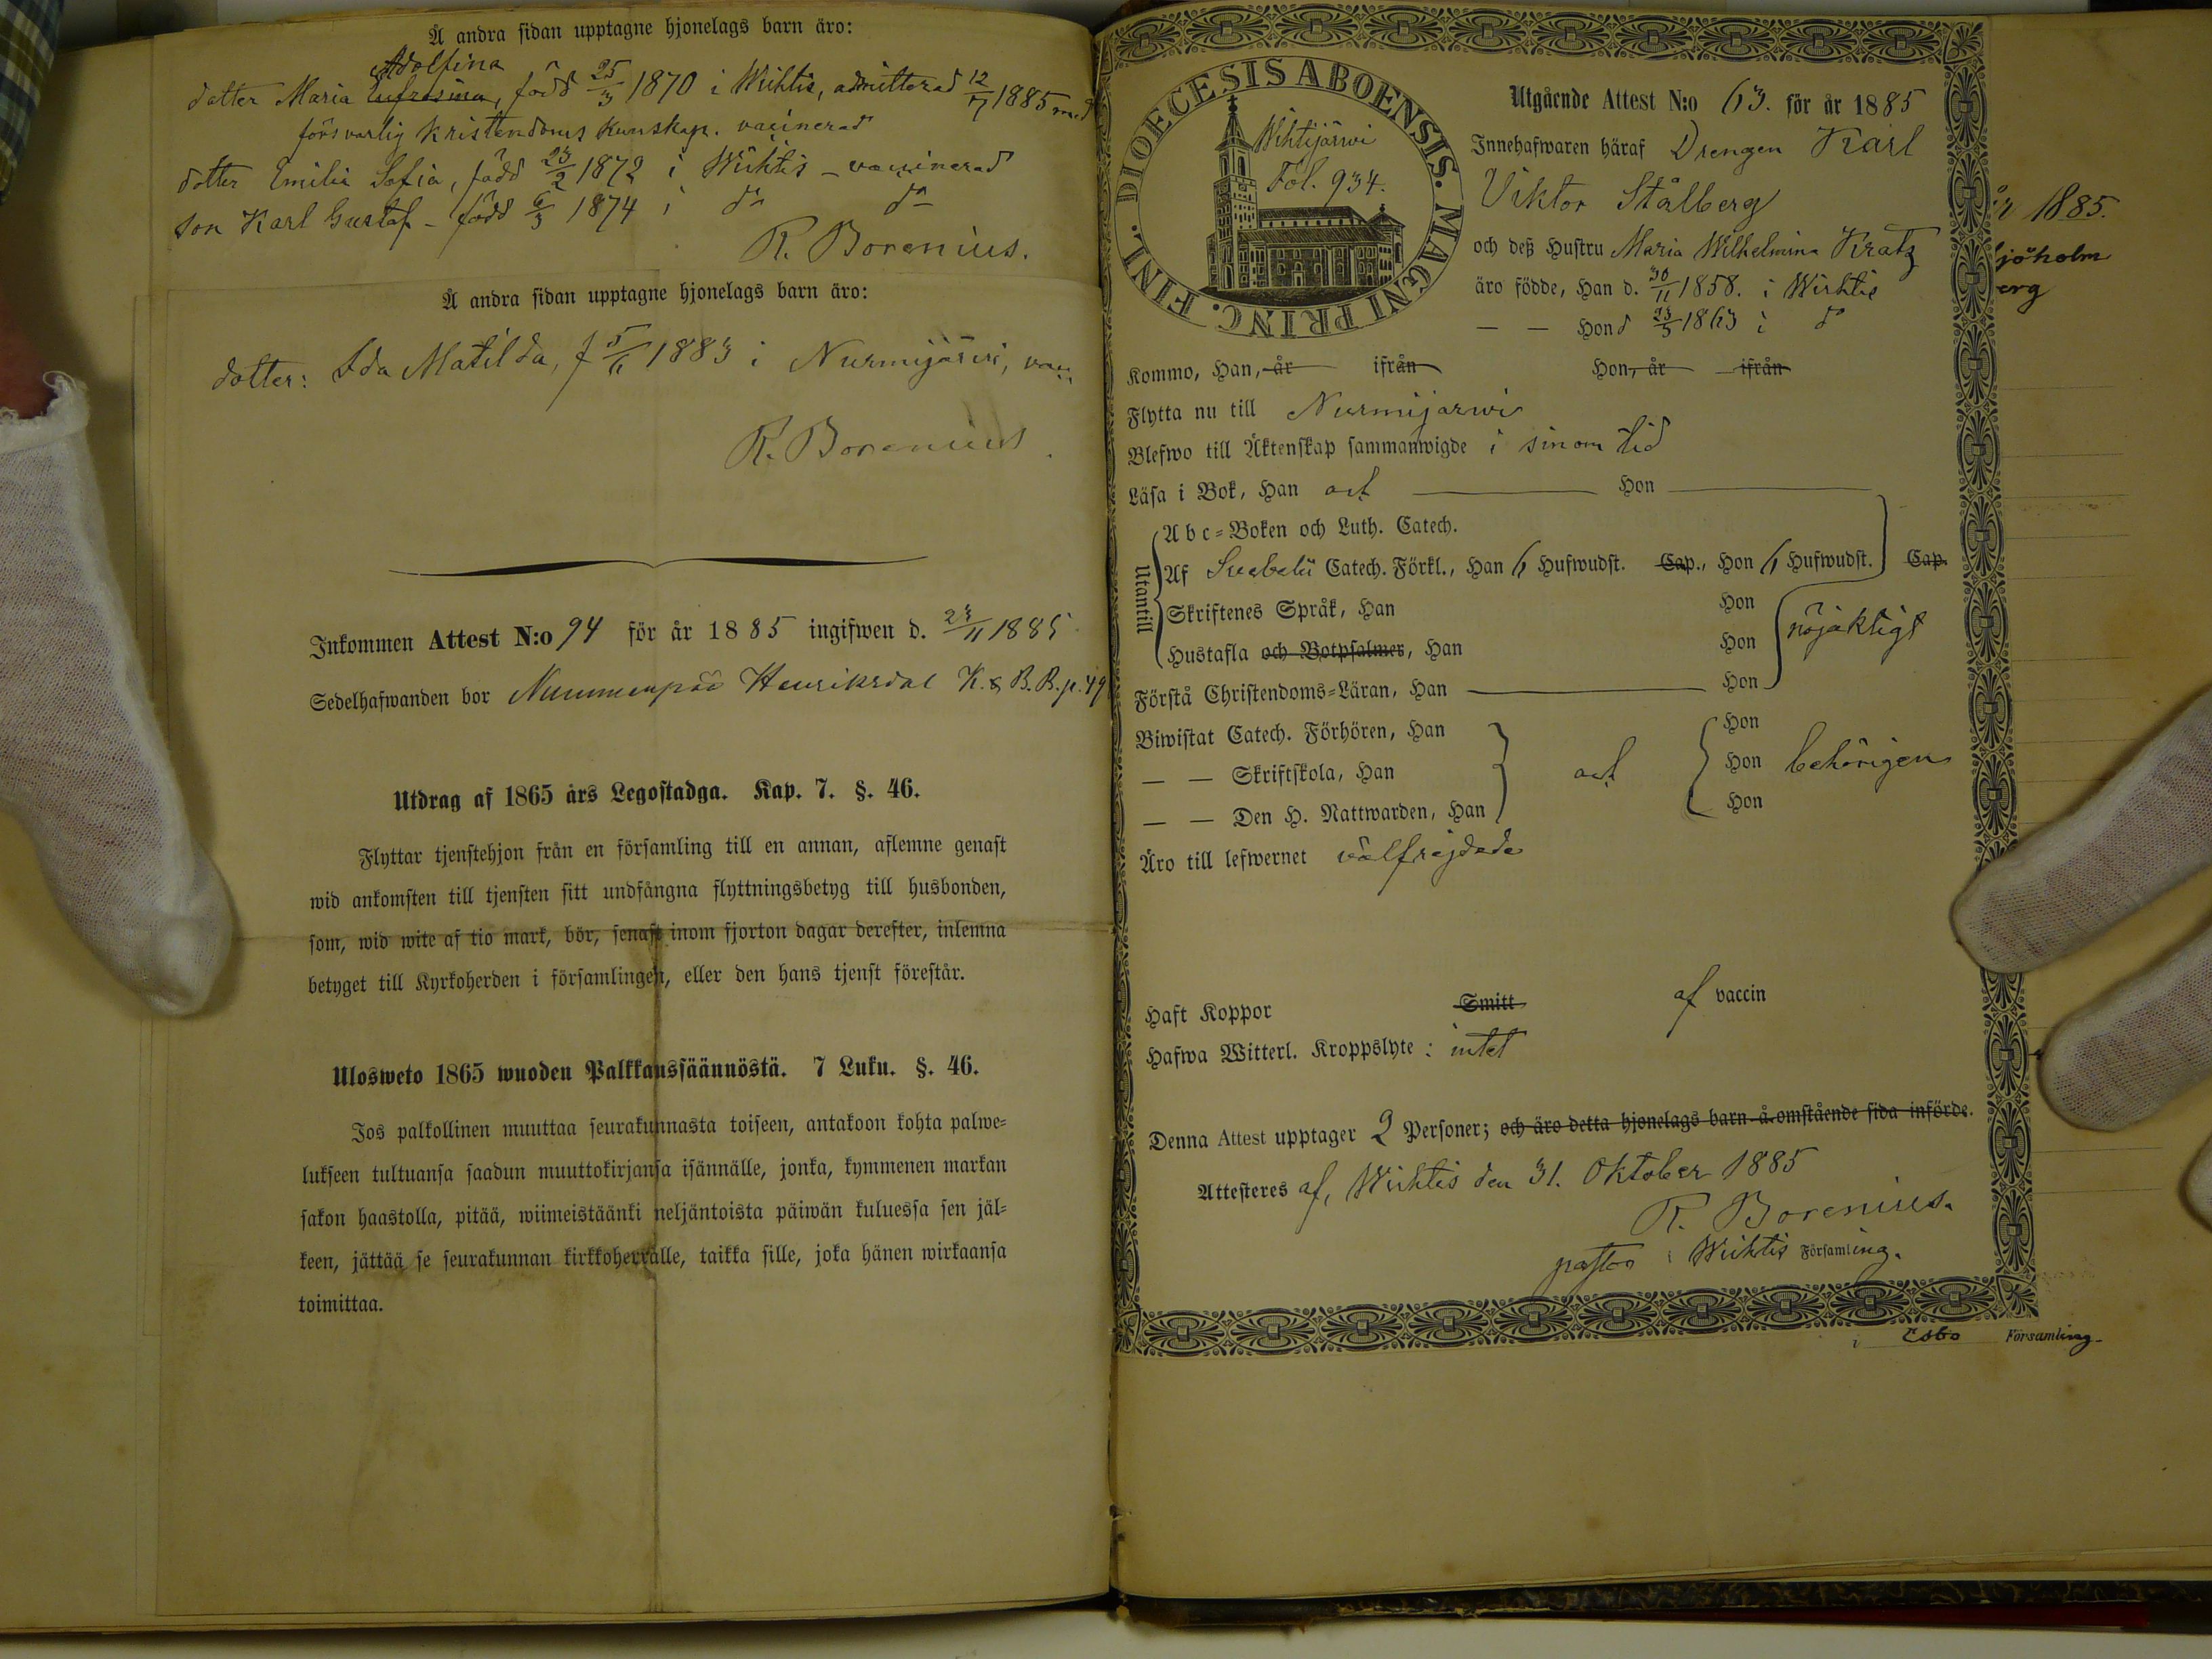 Å andra sidan upptagne hjonelags barn äro:
Adolfina
dotter Maria Eufrosina, född 25/3 1870 i Wichtis, admitterad 12/7 1885 med
försvarlig kristendoms kunskap. vaccinerad
dotter Emilia Sofia, född 23/2 1872 i Wichtis – vaccinerad
son Karl Gustaf – född 6/3 1874 i do do
R. Borenius.
Å andra sidan upptagne hjonelags barn äro:
dotter: Ida Matilda, f 5/6 1883 i Nurmijärvi, vacc.
R. Borenius.
Inkommen Attest N:o 94 för år 1885 ingifwen d. 23/11 1885
Sedelhafwanden bor Nummenpää Henriksdal K. & B. B. p. 49
Utdrag af 1865 års Legostadga. Kap. 7. §. 46.
Flyttar tjenstehjon från en församling till en annan, aflemne genast
wid ankomsten till tjensten sitt undfångna flyttningsbetyg till husbonden,
som, wid wite af tio mark, bör, senast inom fjorton dagar derefter, inlemna
betyget till Kyrkoherden i församlingen, eller den hans tjenst förestår.
Ulosweto 1865 wuoden Palkkaussäännöstä. 7 Luku. §. 46.
Jos palkollinen muuttaa seurakunnasta toiseen, antakoon kohta palwe=
lukseen tultuansa saadun muuttokirjansa isännälle, jonka, kymmenen markan
sakon haastolla, pitää, wiimeistäänki neljäntoista päiwän kuluessa sen jäl=
keen, jättää se seurakunnan kirkkoherralle, taikka sille, joka hänen wirkaansa
toimittaa.
DIOECESIS ABOENSIS. MAGNI PRINC. FINL.
Wihtijärwi
Fol. 934.
Utgående Attest N:o 63. för år 1885
Innehafwaren häraf Drengen Karl
Viktor Stålberg
och deß Hustru Maria Wilhelmina Kratz
äro födde, Han d. 30/11 1858. i Wichtis
— — Hon d 23/5 1863 i do
Kommo, Han, år ifrån Hon, år ifrån
Flytta nu till Nurmijärwi
Blefwo till Äktenskap sammanwigde i sinom tid
Läsa i Bok, Han och Hon
Utantill
Abc=Boken och Luth. Catech.
Af Svebelii Catech. Förkl., Han 6 Hufwudst. Cap., Hon 6 Hufwudst. Cap.
Skriftenes Språk, Han Hon
Hustafla och Botpsalmer, Han Hon nöjaktigt
Förstå Christendoms=Läran, Han Hon
Biwistat Catech. Förhören, Han Hon
— — Skriftskola, Han och Hon behörigen
— — Den H. Nattwarden, Han Hon
Äro till lefwernet välfrejdade
Haft Koppor Smitt af vaccin
Hafwa Witterl. Kroppslyte: intet
Denna Attest upptager 2 Personer; och äro detta hjonelags barn å omstående sida införde.
Attesteres af, Wichtis den 31. Oktober 1885
R. Borenius.
pastor i Wichtis Församling.
1885.
jöholm
erg
i Esbo Församling